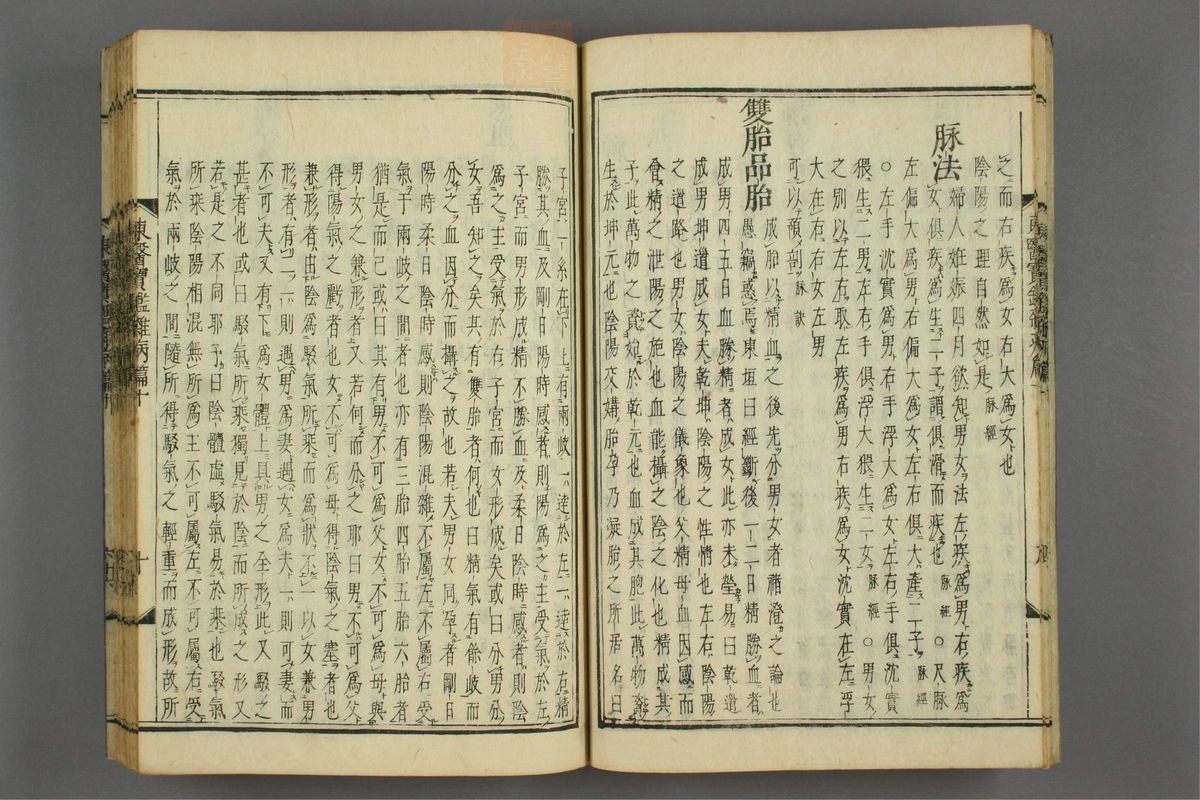 之而右疾爲女右大爲女也
陰陽之理自然如是脉經
脉法
婦人妊娠四月欲知男女法左疾爲男右疾爲
女俱疾爲生二子謂俱滑而疾也脉經○尺脉
左偏大爲男右偏大爲女左右俱大產二子脉經
○左手沈實爲男右手浮大爲女左右手俱沈實
猥生二男左右手俱浮大猥生二女脉經○男女
之別以左右取左疾爲男右疾爲女沈實在左浮
大在右右女左男
可以預剖脉訣
雙胎品胎
成胎以精血之後先分男女者褚澄之論也
愚竊惑焉東垣曰經斷後一二日精勝血者
成男四五日血勝精者成女此亦未瑩易曰乾道
成男坤道成女夫乾坤陰陽之性情也左右陰陽
之道路也男女陰陽之儀象也父精母血因感而
會精之泄陽之施也血能攝之陰之化也精成其
子此萬物之資始於乾元也血成其胞此萬物資
生於坤元也陰陽交媾胎孕乃凝胎之所居名曰
子宮一系在下上有兩歧一達於左一達於右精
勝其血及剛日陽時感者則陽爲之主受氣於左
子宮而男形成精不勝血及柔日陰時感者則陰
爲之主受氣於右子宮而女形成矣或曰分男分
女吾知之矣其有雙胎者何也曰精氣有餘歧而
分之血因分而攝之故也若夫男女同孕者剛日
陽時柔日陰時感則陰陽混雜不屬左不屬右受
氣于兩歧之間者也亦有三胎四胎五胎六胎者
猶是而已或曰其有男不可爲父女不可爲母與
男女之兼形者又若何而分之耶曰男不可爲父
得陽氣之虧者也女不可爲母得陰氣之塞者也
兼形者由陰爲駁氣所乘而爲狀不一以女兼男
形者有二一則遇男爲妻遇女爲夫一則可妻而
不可夫又有下爲女體上具男之全形此又駁之
甚者也或曰駁氣所乘獨見於陰而所成之形又
若是之不同耶予曰陰體虛駁氣易於乘也駁氣
所乘陰陽相混無所爲主不可屬左不可屬右受
氣於兩歧之間隨所得駁氣之輕重而成形故所
東醫寶鑑雜病篇十
十